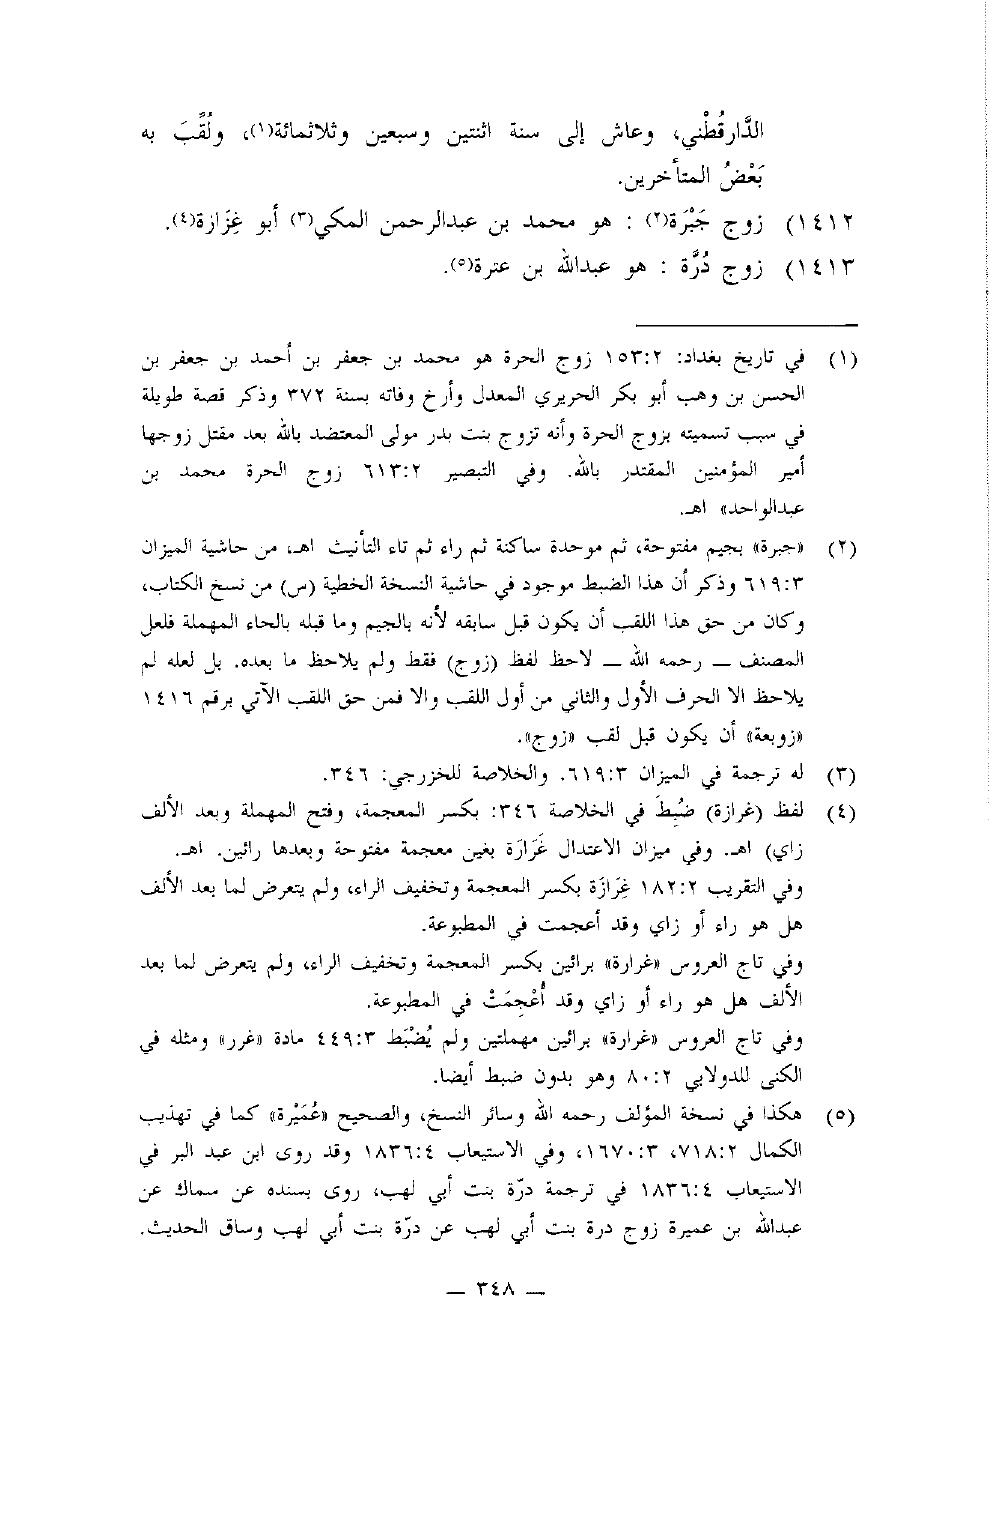 الدَّارقُطْني، وعاش إلى سنة اثنتين وسبعين وثلاثمائة(١)، ولُقِّبَ به
بَعْضُ المتأخرين.
١٤١٢) زوج جَبْرَة(٢) : هو محمد بن عبدالرحمن المكي(٣) أبو غِزَازة(٤).
١٤١٣) زوج دُرَّة : هو عبدالله بن عترة(٥).
(١) في تاريخ بغداد: ١٥٣:٢ زوج الحرة هو محمد بن جعفر بن أحمد بن جعفر بن
الحسن بن وهب أبو بكر الحريري المعدل وأرخ وفاته بسنة ٣٧٢ وذكر قصة طويلة
في سبب تسميته بزوج الحرة وأنه تزوج بنت بدر مولى المعتضد بالله بعد مقتل زوجها
أمير المؤمنين المقتدر بالله. وفي التبصير ٦١٣:٢ زوج الحرة محمد بن
عبدالواحد» اهـ.
(٢) «جبرة» بجيم مفتوحة، ثم موحدة ساكنة ثم راء ثم تاء التأنيث اهـ، من حاشية الميزان
٦١٩:٣ وذكر أن هذا الضبط موجود في حاشية النسخة الخطية (س) من نسخ الكتاب،
وكان من حق هذا اللقب أن يكون قبل سابقه لأنه بالجيم وما قبله بالحاء المهملة فلعل
المصنف ــ رحمه الله ــ لاحظ لفظ (زوج) فقط ولم يلاحظ ما بعده. بل لعله لم
يلاحظ الا الحرف الأول والثاني من أول اللقب والا فمن حق اللقب الآتي برقم ١٤١٦
«زوبعة» أن يكون قبل لقب «زوج».
(٣) له ترجمة في الميزان ٦١٩:٣. والخلاصة للخزرجي: ٣٤٦.
(٤) لفظ (غرازة) ضُبِطَ في الخلاصة ٣٤٦: بكسر المعجمة، وفتح المهملة وبعد الألف
زاي) اهـ. وفي ميزان الاعتدال غَرَارَة بغين معجمة مفتوحة وبعدها رائين. اهـ.
وفي التقريب ١٨٢:٢ غِرَازَة بكسر المعجمة وتخفيف الراء، ولم يتعرض لما بعد الألف
هل هو راء أو زاي وقد أعجمت في المطبوعة.
وفي تاج العروس «غرارة» برائين بكسر المعجمة وتخفيف الراء، ولم يتعرض لما بعد
الألف هل هو راء أو زاي وقد أُعْجِمَتْ في المطبوعة.
وفي تاج العروس «غرارة» برائين مهملتين ولم يُضْبَط ٤٤٩:٣ مادة «غرر» ومثله في
الكنى للدولابي ٨٠:٢ وهو بدون ضبط أيضا.
(٥) هكذا في نسخة المؤلف رحمه الله وسائر النسخ، والصحيح «عُمَيْرة» كما في تهذيب
الكمال ٧١٨:٢، ١٦٧٠:٣، وفي الاستيعاب ١٨٣٦:٤ وقد روى ابن عبد البر في
الاستيعاب ١٨٣٦:٤ في ترجمة درّة بنت أبي لهب، روى بسنده عن سماك عن
عبدالله بن عميرة زوج درة بنت أبي لهب عن درّة بنت أبي لهب وساق الحديث.
ــ ٣٤٨ ــ